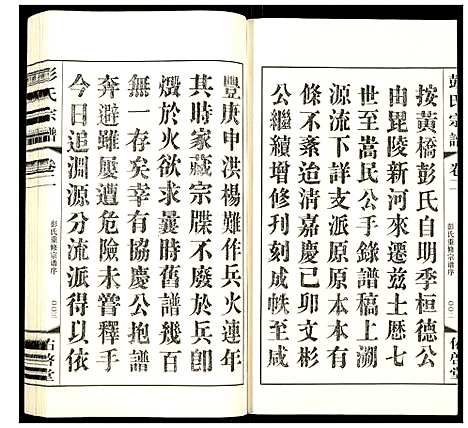 彭氏宗譜
卷一
按黃橋彭氏自明季桓德公
由毘陵新河來遷兹土歷七
世至嵩民公手錄譜稿上溯
源流下詳支派原原本本有
條不紊迨清嘉慶已卯文彬
公繼續增修刊刻成帙至咸
彭氏重修宗譜序
〇〇二
佑啓堂
豐庚申洪楊難作兵火連年
其時家藏宗牒不於兵卽
燬於火欲求曩時舊譜幾百
無一存矣幸有協慶公抱譜
奔避雖屢遭危險未嘗釋手
今日追淵源分流派得以依
彭氏宗譜
卷一
彭氏重修宗譜序
〇〇三
佑啓堂